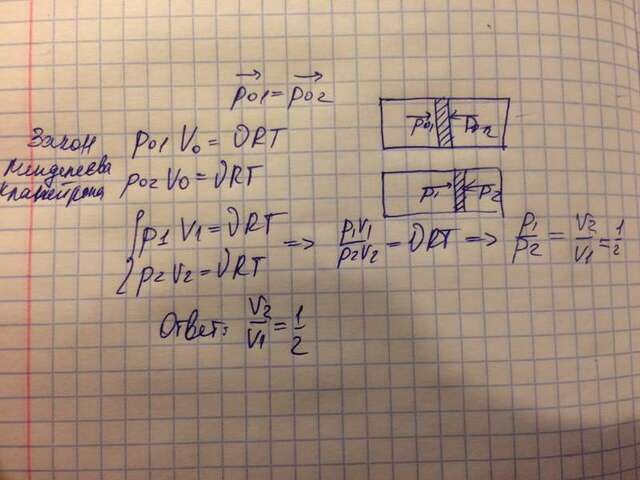 p₀₁ = p₀₂
Закон Менделеева Клапейрона
p₀₁ V₀ = νRT
p₀₂ V₀ = νRT
p₀₁ p₀₂
p₁ p₂
{ p₁ V₁ = νRT
{ p₂ V₂ = νRT
=> p₁V₁/p₂V₂ = νRT => p₁/p₂ = V₂/V₁ = 1/2
Ответ: V₂/V₁ = 1/2